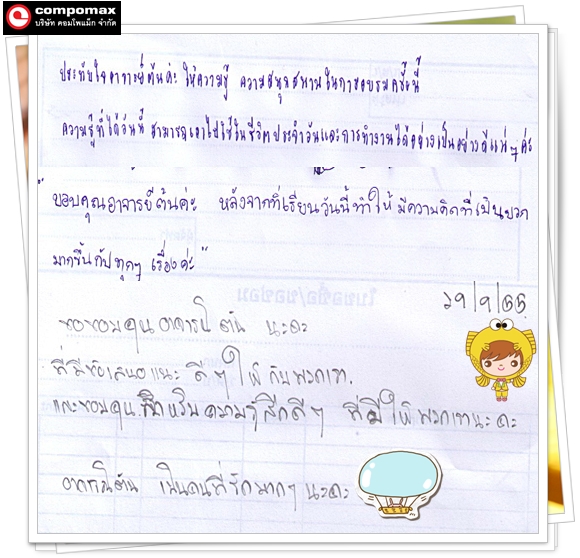 compomax
บริษัท คอมโพแม็ก จำกัด
ประทับใจอาจารย์ต้นค่ะ ให้ความรู้ ความสนุกสนานในการอบรมครั้งนี้
ความรู้ที่ได้วันนี้ สามารถเอาไปใช้ในชีวิตประจำวันและการทำงานได้อย่างเป็นอย่างดีแน่ๆค่ะ
"ขอบคุณอาจารย์ต้นค่ะ หลังจากที่เรียนวันนี้ทำให้มีความคิดที่เป็นบวก
มากขึ้นกับทุกๆ เรื่องค่ะ"
ใบขอซื้อ/ขอซ่อม
29/9/55
ขอขอบคุณ อาจารย์ ต้น นะคะ
ที่มีข้อเสนอแนะ ดีๆ ให้ กับพวกเรา
และขอบคุณ สำหรับความรู้สึกดีๆ ที่มีให้พวกเรานะคะ
อาจารย์ต้น เป็นคนที่น่ารักมากๆ นะคะ